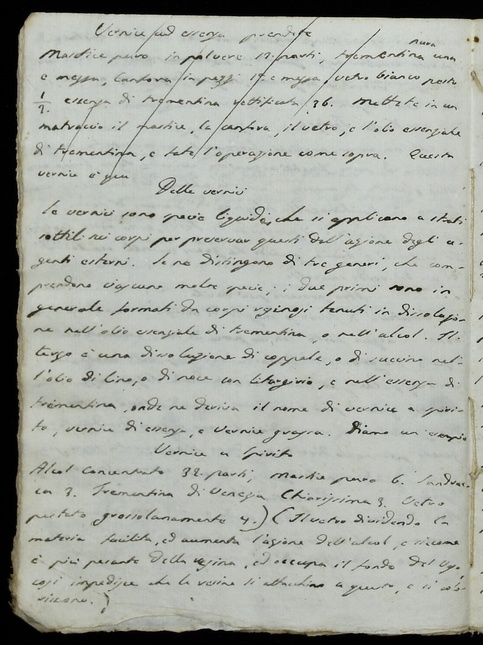 Vernice ad essenza prendete
Mastice puro in polvere 12 parti, trementina pura una
e mezza, Canfora in pezzi 1 e mezza, vetro bianco pesto
1/2. essenza di trementina rettificata 36. Mettete in un
matraccio il mastice, la canfora, il vetro, e l'olio essenziale
di trementina, e fate l'operazione come sopra. Questa
vernice è più
Delle vernici
Le vernici sono specie liquide, che si applicano a strati
sottili nei corpi per preservar questi dall'azione degli a-
genti esterni. Se ne distinguono di tre generi, che com-
prendono ciascuno molte specie; i due primi sono in
generale formati da corpi resinosi tenuti in dissoluzio-
ne nell'olio essenziale di trementina, o nell'alcol. Il
terzo è una dissoluzione di coppale, o di succino nel-
l'olio di lino, o di noce con litargirio, e nell'essenza di
trementina, onde ne deriva il nome di vernice a spiri-
to, vernice di essenza, e vernice grassa. Diamo un esempio
Vernice a Spirito
Alcol concentrato 32. parti, mastice puro 6. Sandrac-
ca 3. Trementina di Venezia Chiarissima 3. Vetro
pestato grossolanamente 4.) (Il vetro dividendo la
materia facilita, ed aumenta l'azione dell'alcol, e siccome
è più pesante della resina, ed occupa il fondo del
così impedisce che le resine si attachino a questo, e si